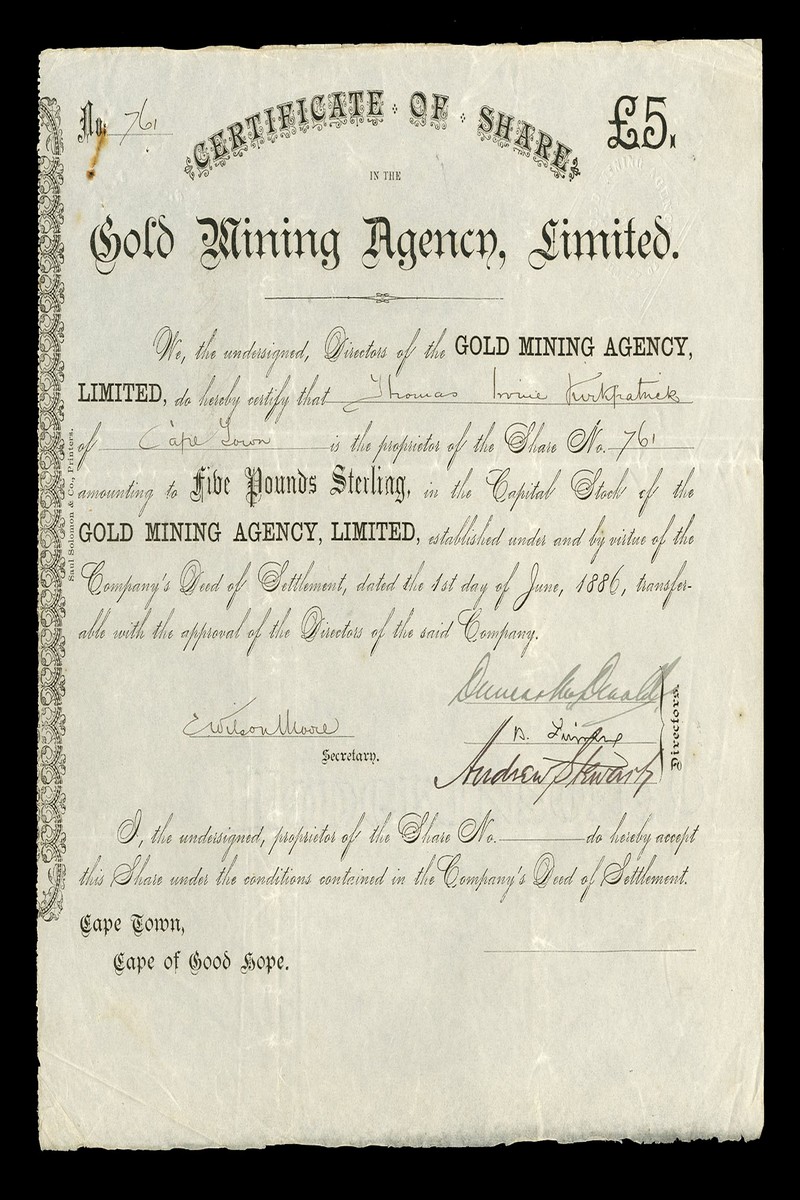 No. 761
CERTIFICATE OF SHARE
£5.
IN THE
Gold Mining Agency, Limited.
We, the undersigned, Directors of the GOLD MINING AGENCY,
LIMITED, do hereby certify that Thomas Irvine Kirkpatrick
of Cape Town is the proprietor of the Share No. 761
amounting to Five Pounds Sterling, in the Capital Stock of the
GOLD MINING AGENCY, LIMITED, established under and by virtue of the
Company's Deed of Settlement, dated the 1st day of June, 1886, transfer-
able with the approval of the Directors of the said Company.
EWilson Moore
Secretary.
Andrew Stewart
Directors.
I, the undersigned, proprietor of the Share No. do hereby accept
this Share under the conditions contained in the Company's Deed of Settlement.
Cape Town,
Cape of Good Hope.
Saul Solomon & Co., Printers.